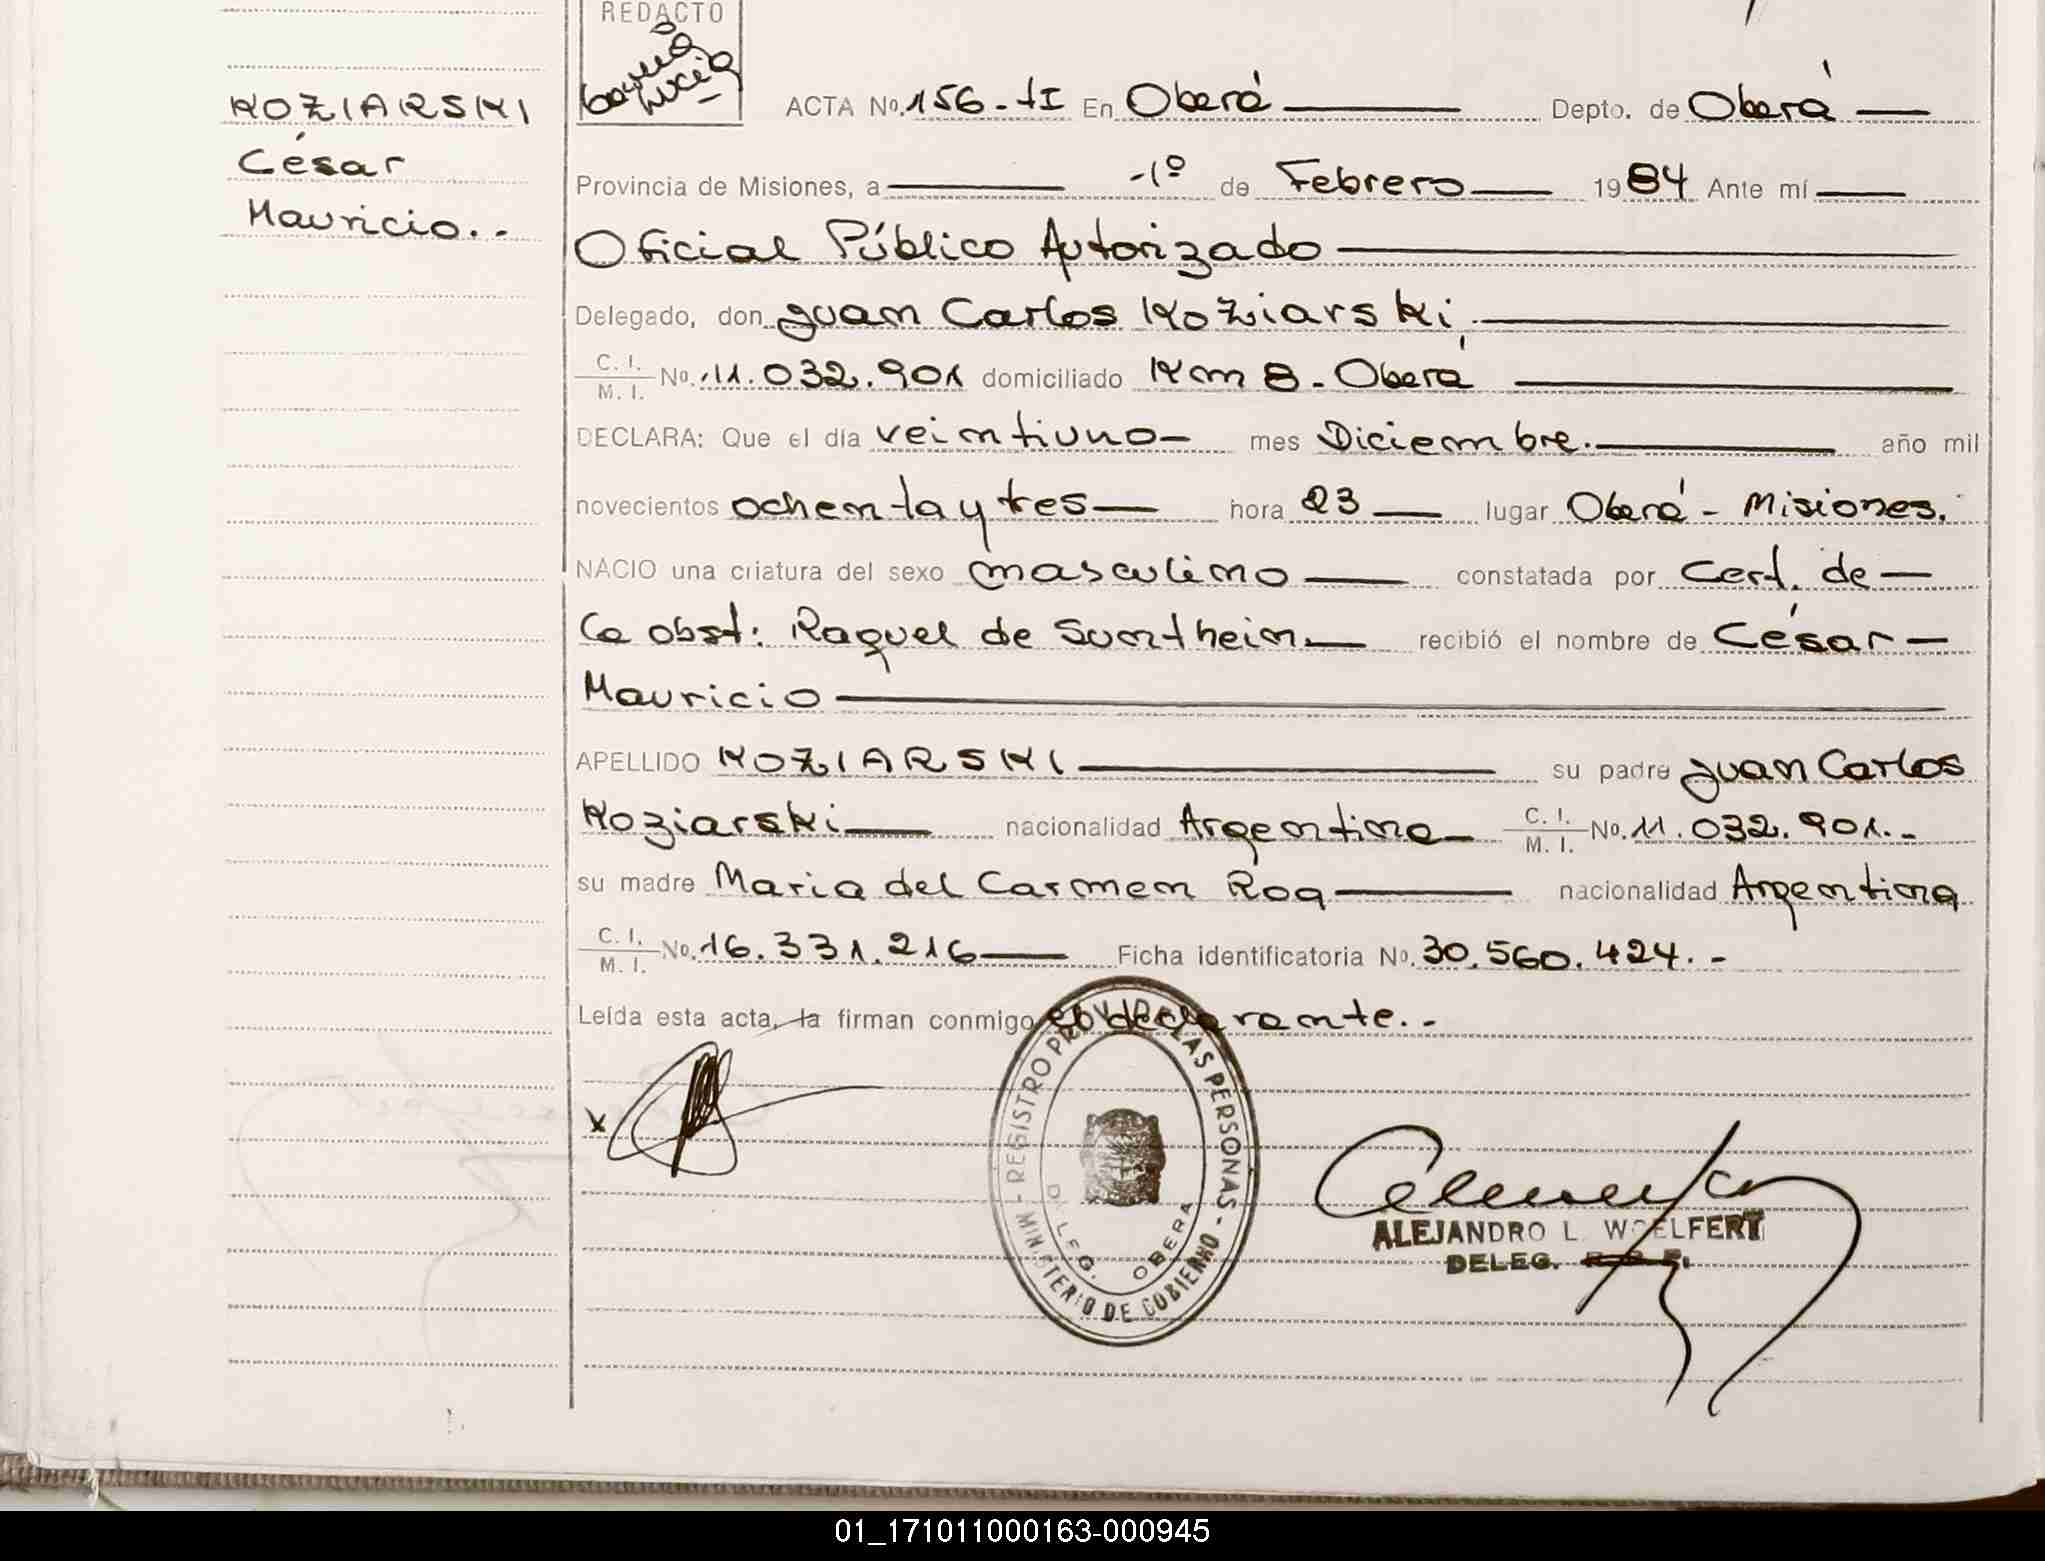 REDACTO
KOZIARSKI
César
Mauricio..-
ACTA No. 156-tI En Oberá Depto. de Oberá
Provincia de Misiones, a 1º de Febrero 1984 Ante mí
Oficial Público Autorizado
Delegado, don Juan Carlos Koziarski.
C. I.
M. I. No. 11.032.901 domiciliado Km 8 - Oberá
DECLARA: Que el día veintiuno mes Diciembre. año mil
novecientos ochenta y tres hora 23 lugar Oberá - Misiones.
NACIO una criatura del sexo masculino constatada por Cert. de
la obst: Raquel de Suntheim recibió el nombre de César
Mauricio
APELLIDO KOZIARSKI su padre Juan Carlos
Koziarski nacionalidad Argentina C. I. M. I. No. 11.032.901.-
su madre Maria del Carmen Roa nacionalidad Argentina
C. I.
M. I. No. 16.331.216 Ficha identificatoria No. 30.560.424.-
Leída esta acta, la firman conmigo el declarante..-
x
- REGISTRO PROV. DE LAS PERSONAS -
MINISTERIO DE GOBIERNO
DELEG. OBERA
ALEJANDRO L. WOELFERT
DELEG.
01_171011000163-000945